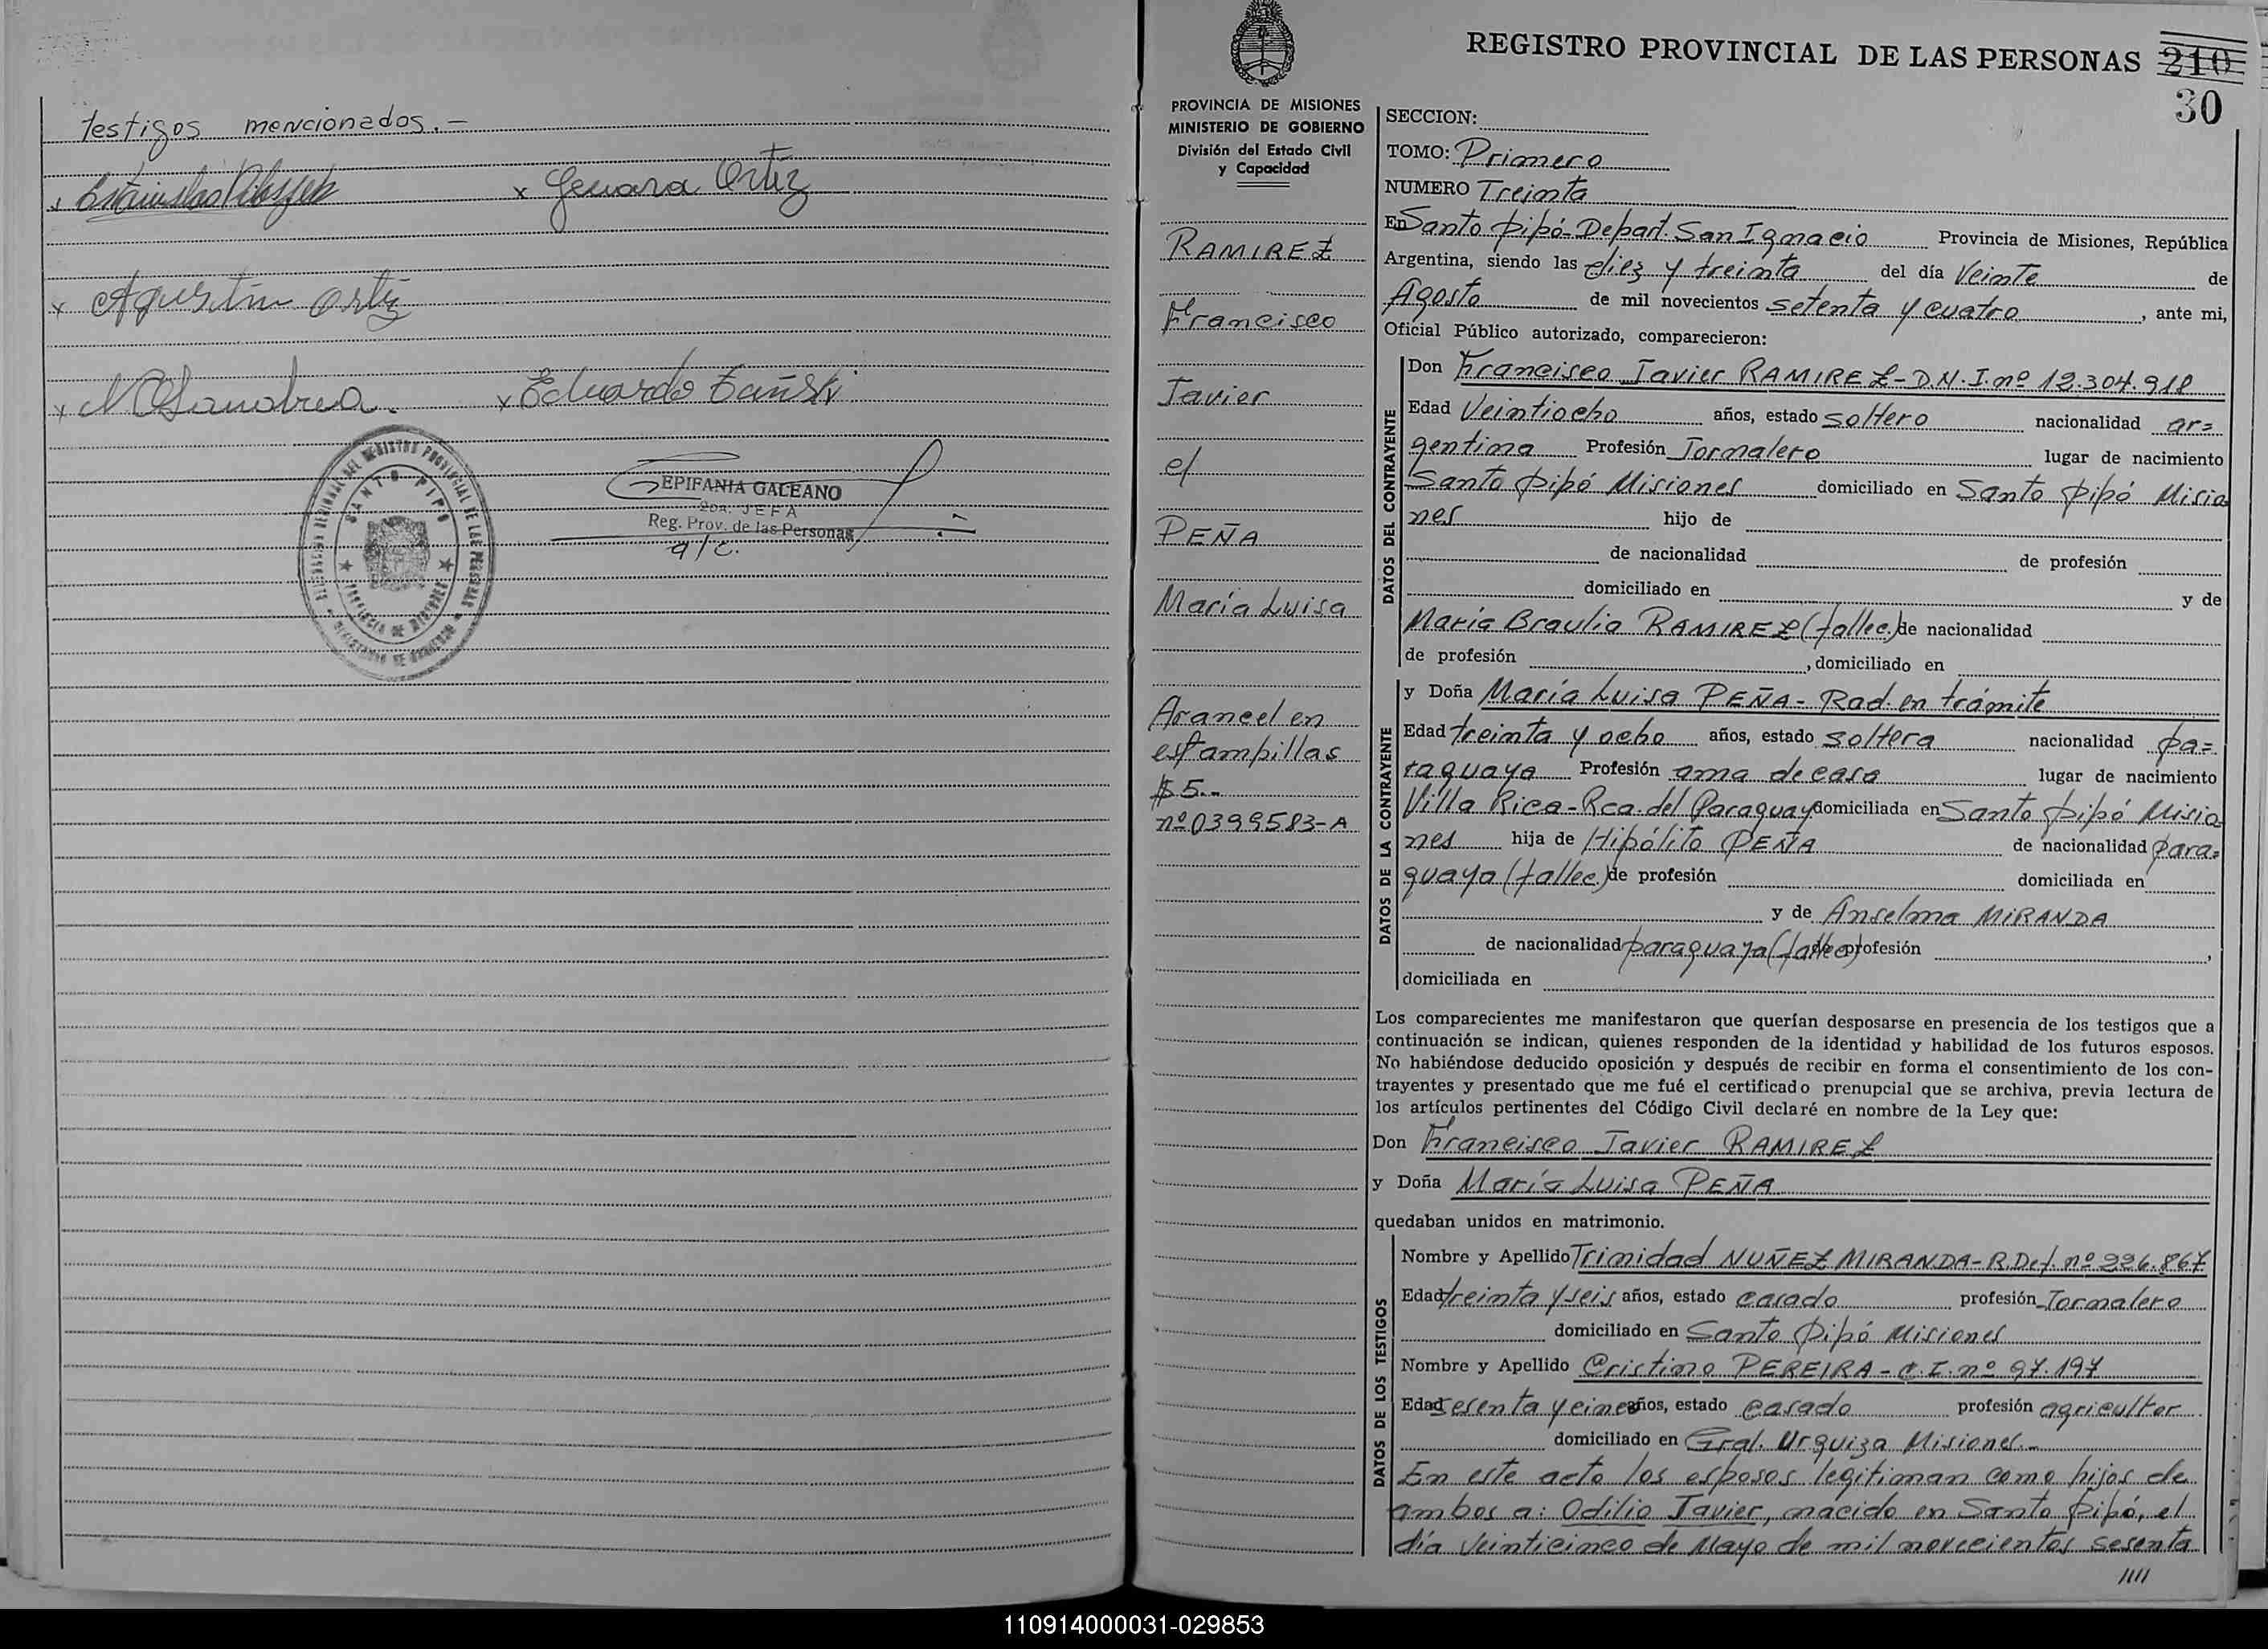 testigos mencionados.-
x Genara Ortiz
x Agustin Ortiz
x
x Eduardo
EPIFANIA GALEANO
2da. JEFA
Reg. Prov. de las Personas
a/c.
SANTO PIPO
PROVINCIA DE MISIONES
REGISTRO PROVINCIAL DE LAS PERSONAS
210
30
PROVINCIA DE MISIONES
MINISTERIO DE GOBIERNO
División del Estado Civil
y Capacidad
RAMIREZ
Francisco
Javier
c/
PEÑA
María Luisa
Arancel en
estampillas
$ 5.-
nº 0399583-A
SECCION:
TOMO: Primero
NUMERO Treinta
En Santo Pipó-Depart. San Ignacio Provincia de Misiones, República
Argentina, siendo las diez y treinta del día Veinte de
Agosto de mil novecientos setenta y cuatro, ante mi,
Oficial Público autorizado, comparecieron:
DATOS DEL CONTRAYENTE
Don Francisco Javier RAMIREZ-D.N.I. nº 12.304.918
Edad Veintiocho años, estado soltero nacionalidad ar=
gentina Profesión Jornalero lugar de nacimiento
Santo Pipó Misiones domiciliado en Santo Pipó Misio
nes hijo de
de nacionalidad de profesión
domiciliado en y de
María Braulia RAMIREZ (fallec.) de nacionalidad
de profesión , domiciliado en
DATOS DE LA CONTRAYENTE
y Doña María Luisa PEÑA- Rad. en trámite
Edad treinta y ocho años, estado soltera nacionalidad pa=
raguaya Profesión ama de casa lugar de nacimiento
Villa Rica-Rca. del Paraguay domiciliada en Santo Pipó Misio
nes hija de Hipólito PEÑA de nacionalidad para=
guaya (fallec.) de profesión domiciliada en
y de Anselma MIRANDA
de nacionalidad paraguaya (fallec) de profesión ,
domiciliada en
Los comparecientes me manifestaron que querían desposarse en presencia de los testigos que a
continuación se indican, quienes responden de la identidad y habilidad de los futuros esposos.
No habiéndose deducido oposición y después de recibir en forma el consentimiento de los con-
trayentes y presentado que me fué el certificado prenupcial que se archiva, previa lectura de
los artículos pertinentes del Código Civil declaré en nombre de la Ley que:
Don Francisco Javier RAMIREZ
y Doña María Luisa PEÑA
quedaban unidos en matrimonio.
DATOS DE LOS TESTIGOS
Nombre y Apellido Trinidad NUÑEZ MIRANDA-R.Def. nº 226.867
Edad treinta y seis años, estado casado profesión Jornalero
domiciliado en Santo Pipó Misiones
Nombre y Apellido Cristino PEREIRA - C.I. nº 97.197
Edad sesenta y cinco años, estado casado profesión agricultor
domiciliado en Gral. Urquiza Misiones.-
En este acto los esposos legitiman como hijos de
ambos a: Odilio Javier, nacido en Santo Pipó, el
día Veinticinco de Mayo de mil novecientos sesenta
////
110914000031-029853